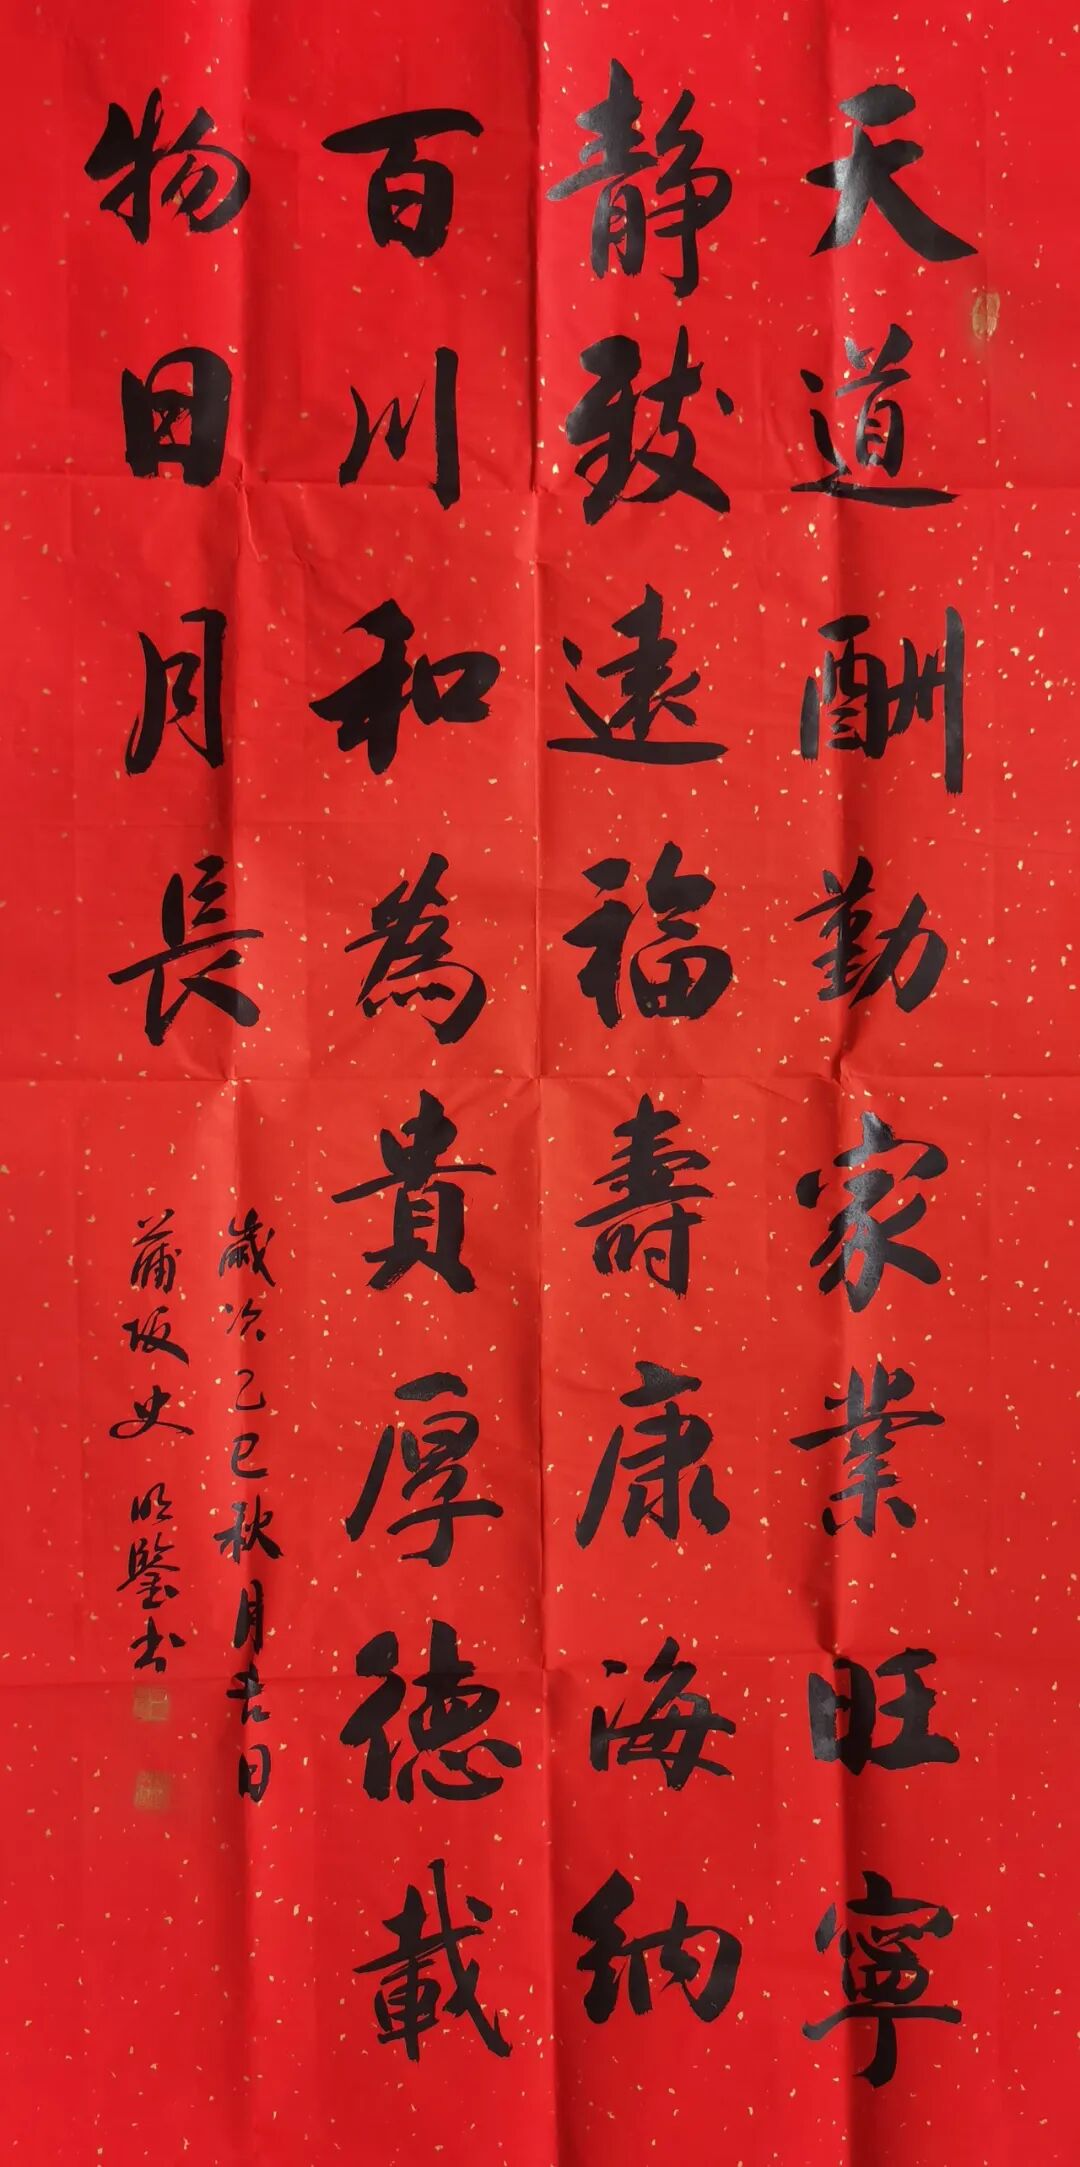 天道酬勤家業旺寧
靜致遠福壽康海納
百川和為貴厚德載
物日月長
歲次乙巳秋月吉日
蒲坂史明鑒书